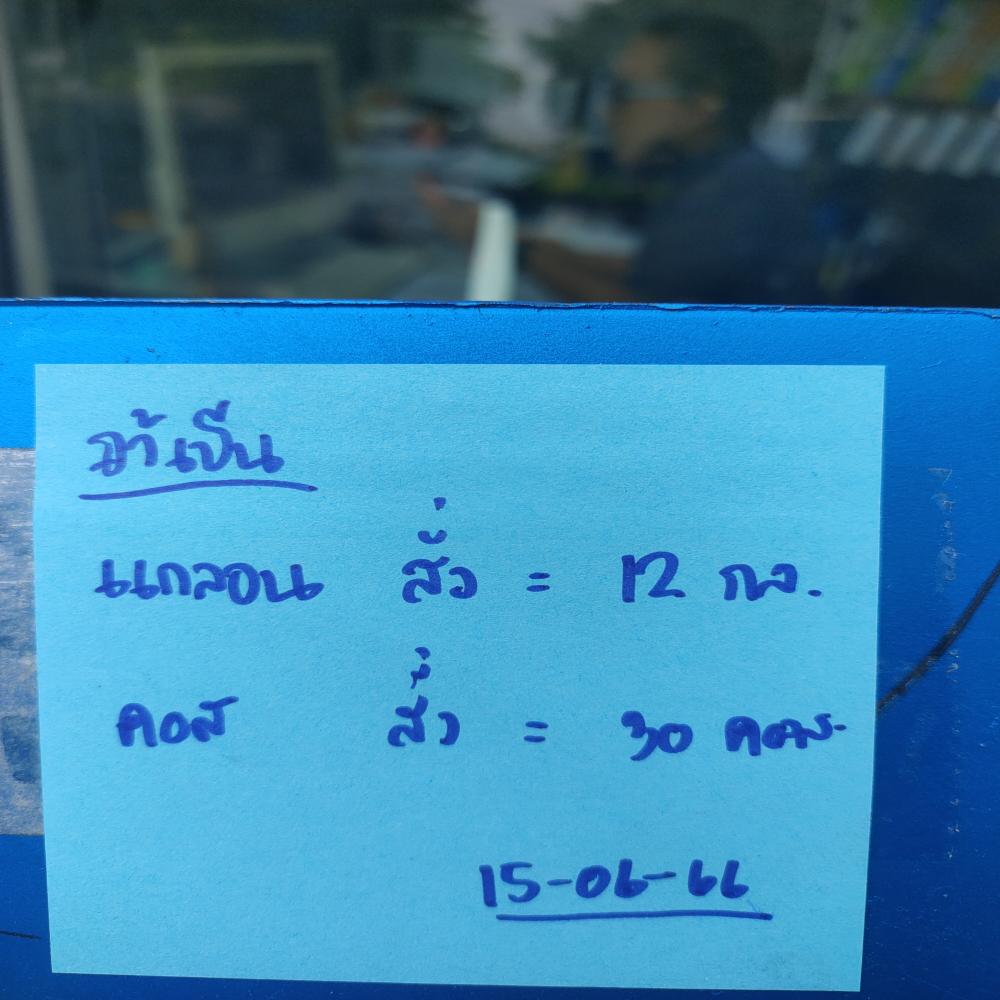 จำเป็น
แกลอน สั่ว = 12 กล.
คอส สั่ว = 30 คอส.
15-06-66